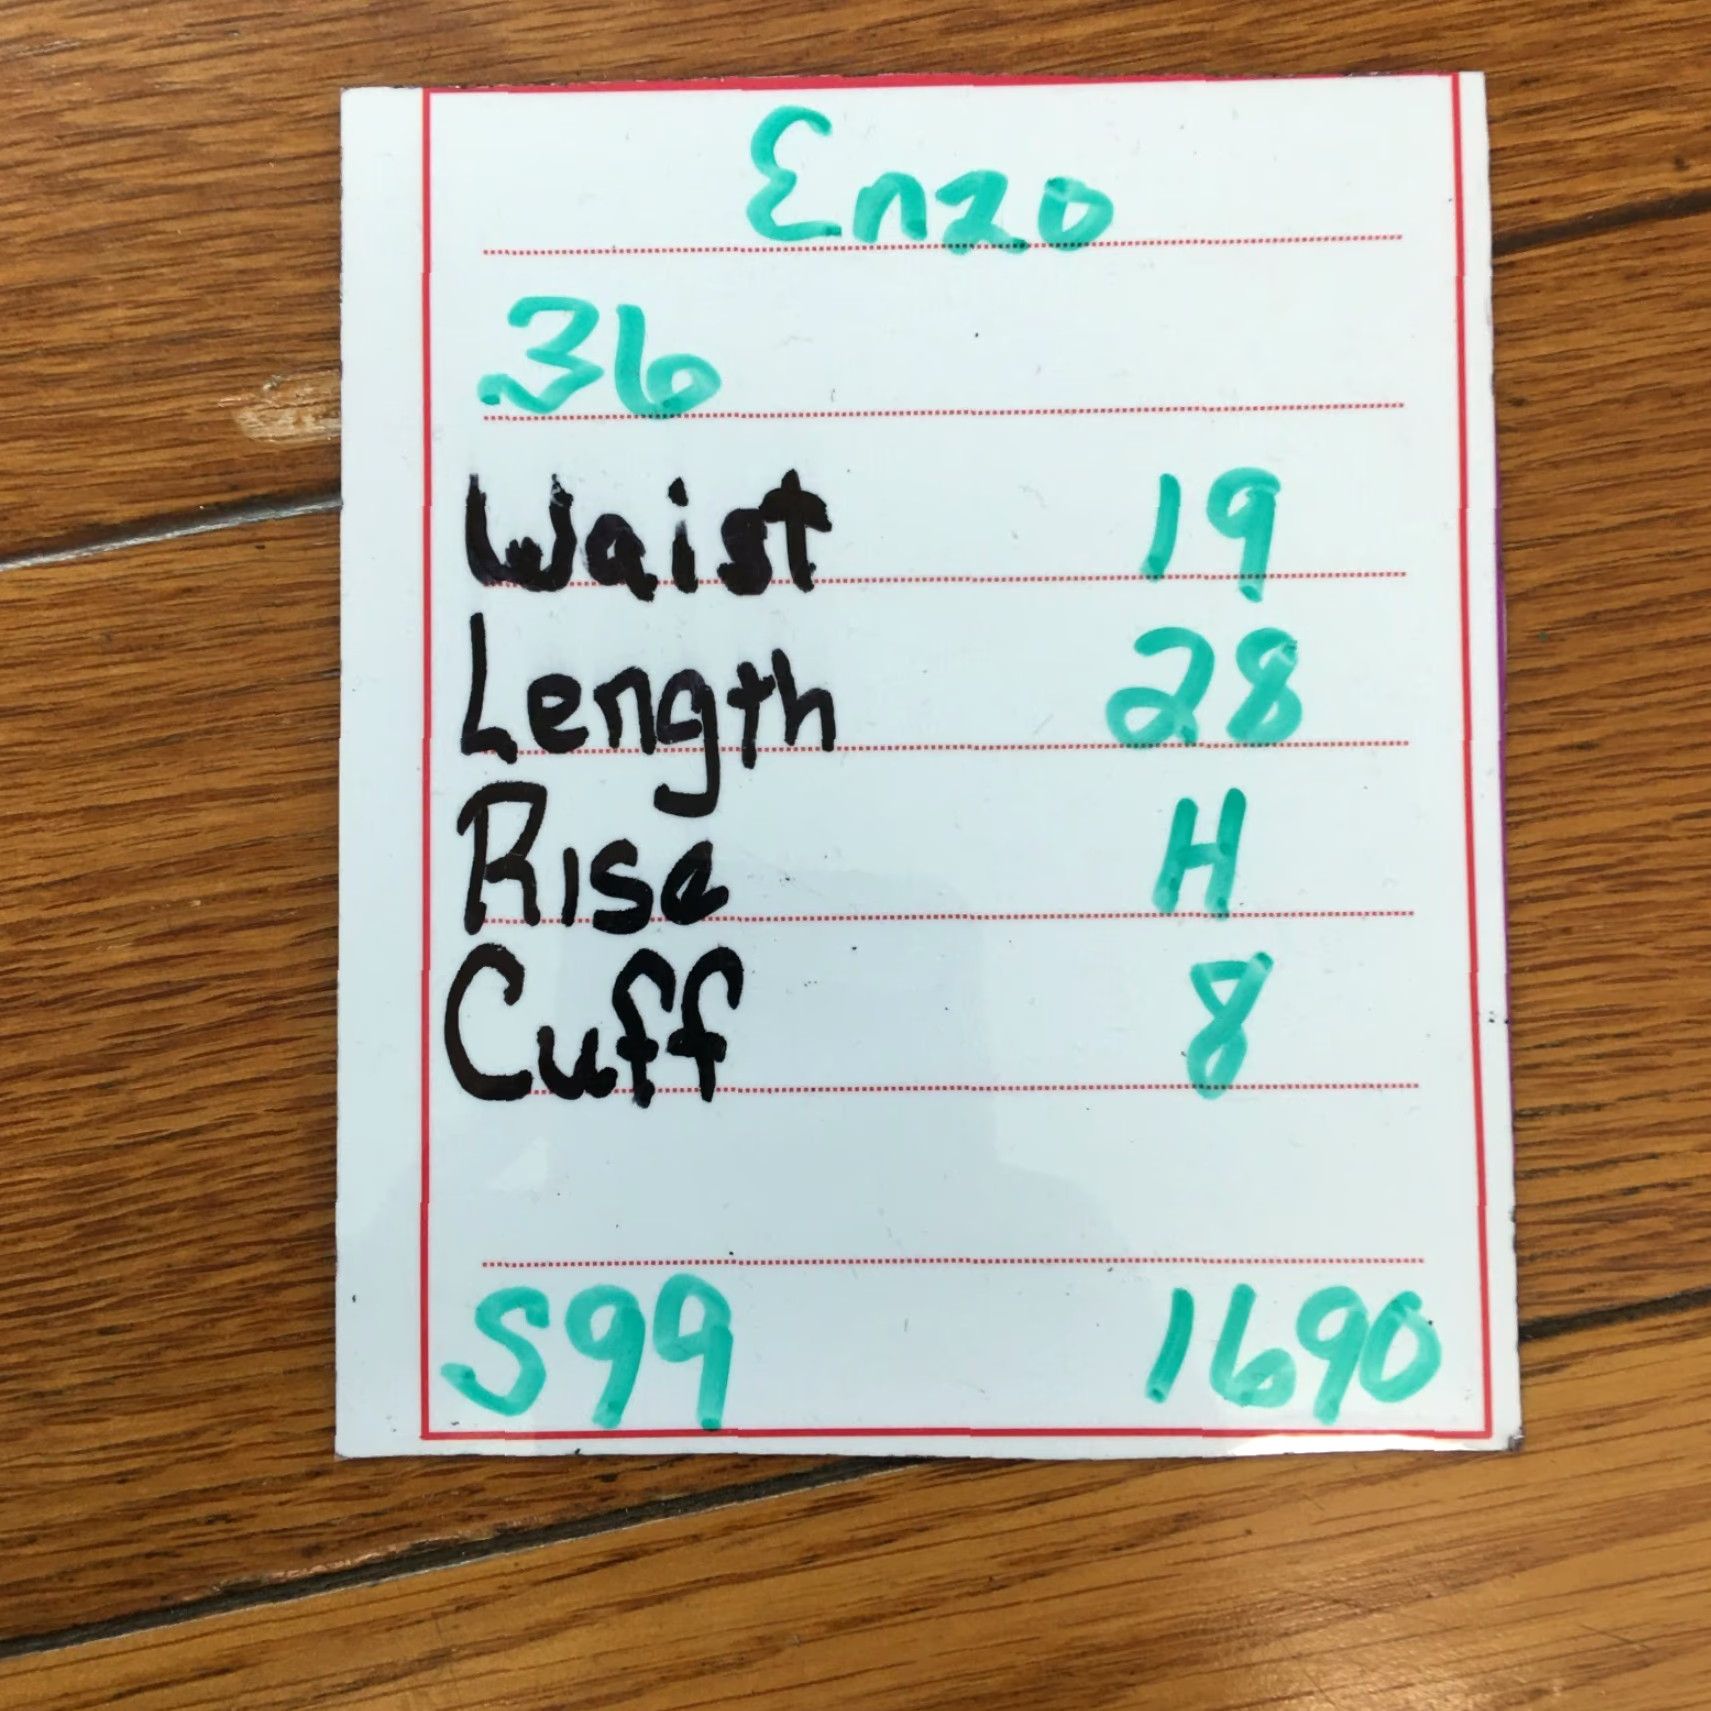 Enzo
36
Waist 19
Length 28
Rise H
Cuff 8
S99 1690